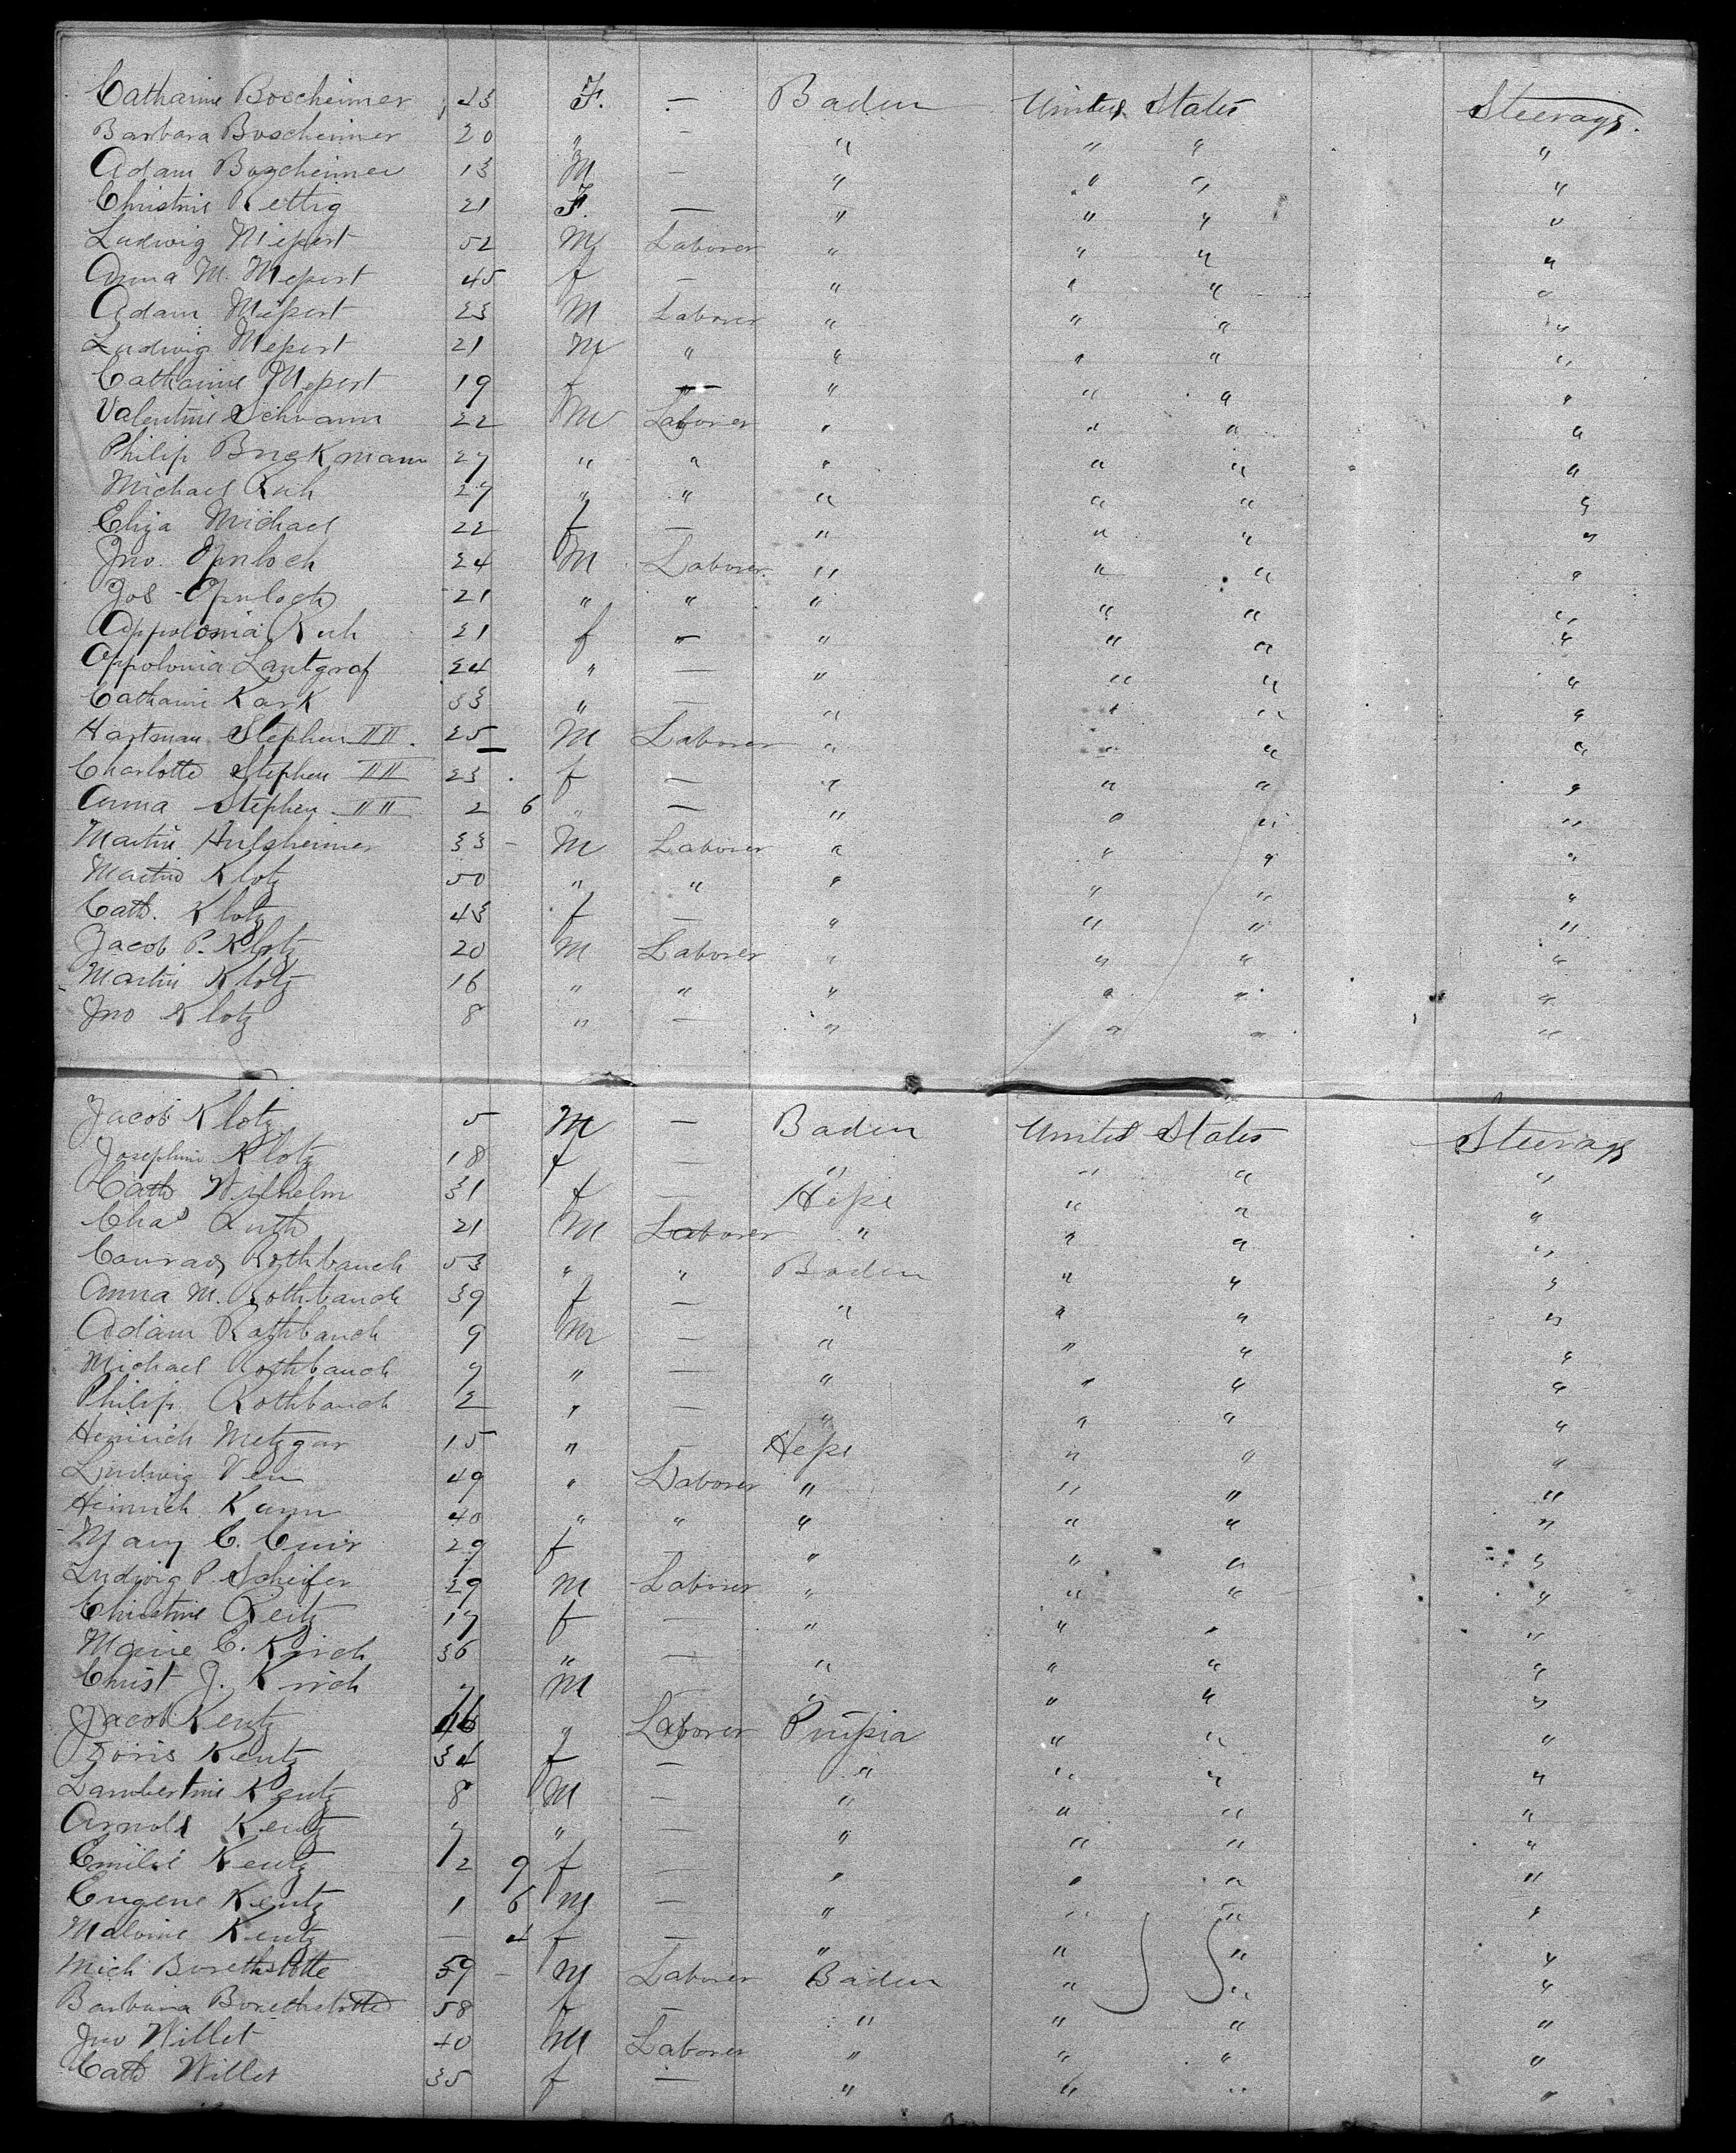 Catharine Boscheimer 23 F. — Baden United States Steerage.
Barbara Boscheimer 20 " — " " " "
Adam Boscheimer 13 M — " " " "
Christine Rettig 21 F. — " " " "
Ludwig Meßert 52 M Laborer " " " "
Anna M. Meßert 45 f — " " " "
Adam Meßert 23 M Laborer " " " "
Ludwig Meßert 21 M " " " " "
Catharine Meßert 19 f — " " " "
Valentine Schwann 22 M Laborer " " " "
Philip Brickmann 27 " " " " " "
Michael Ruh 27 " " " " " "
Eliza Michael 22 f — " " " "
Jno. Opnloch 24 M Laborer " " " "
Jos Opnloch 21 " " " " " "
Appolonia Ruh 21 f — " " " "
Appolonia Lantgraf 24 " — " " " "
Catharine Kark 33 " — " " " "
Hartman Stephen III 25 — M Laborer " " " "
Charlotte Stephen III 23 f — " " " "
Anna Stephen III 2 6 " — " " " "
Martin Hulsheimer 33 — M Laborer " " " "
Martin Klotz 50 " " " " " "
Cath. Klotz 43 f — " " " "
Jacob P. Klotz 20 M Laborer " " " "
Martin Klotz 16 " " " " " "
Jno Klotz 8 " — " " " "
Jacob Klotz 5 M — Baden United States Steerage
Josephine Klotz 18 f — " " " "
Cath Wilhelm 31 f — Heße " " "
Chas Luth 21 M Laborer " " " "
Conrad Rothbauch 53 " " Baden " " "
Anna M. Rothbauch 39 f — " " " "
Adam Rothbauch 9 M — " " " "
Michael Rothbauch 7 " — " " " "
Philip Rothbauch 2 " — " " " "
Heinrich Metzgar 15 " — Heße " " "
Ludwig Ven 49 " Laborer " " " "
Heinrich Kann 40 " " " " " "
Mary C. Cuir 29 f — " " " "
Ludwig P. Scheifer 29 M Laborer " " " "
Christine Reitz 17 f — " " " "
Marie C. Kirch 36 " — " " " "
Christ J. Kirch 7 M — " " " "
Jacob Kentz 46 " Laborer Prußia " " "
Doris Kentz 34 f — " " " "
Lambertine Kentz 8 M — " " " "
Arnold Kentz 7 " — " " " "
Emilie Kentz 2 9 f — " " " "
Eugene Kentz 1 6 M — " " " "
Malvine Kentz — 4 f — " " " "
Mich Borethslotte 59 — M Laborer Baden " " "
Barbara Borethslotte 58 f — " " " "
Jno Willet 40 M Laborer " " " "
Cath Willet 35 f — " " " "